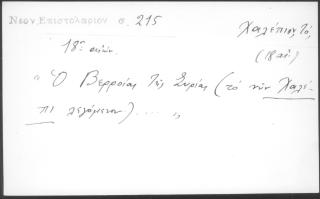 Νεον Επιστολαριον σ. 215
Χαλέπιον, τό,
18ος αιών.
(18 αἰ.)
" Ὁ Βερροίας τῆς Συρίας (τό νῦν Χαλέ-
πι λεγόμενον) .... "